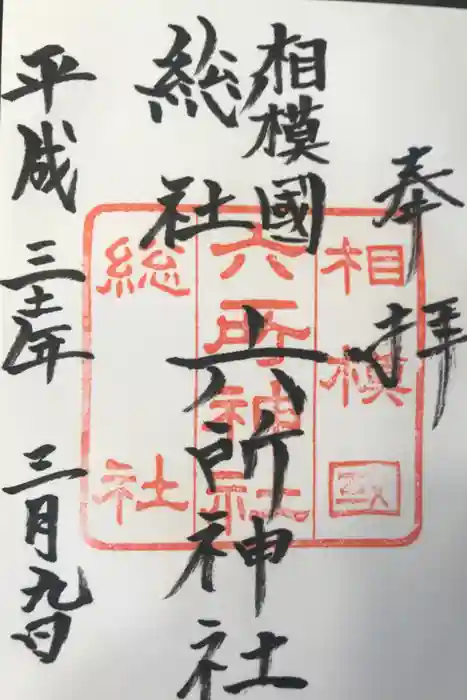 奉拝
相模國
総社
六所神社
平成三十一年三月九日
相模国
六所神社
総社